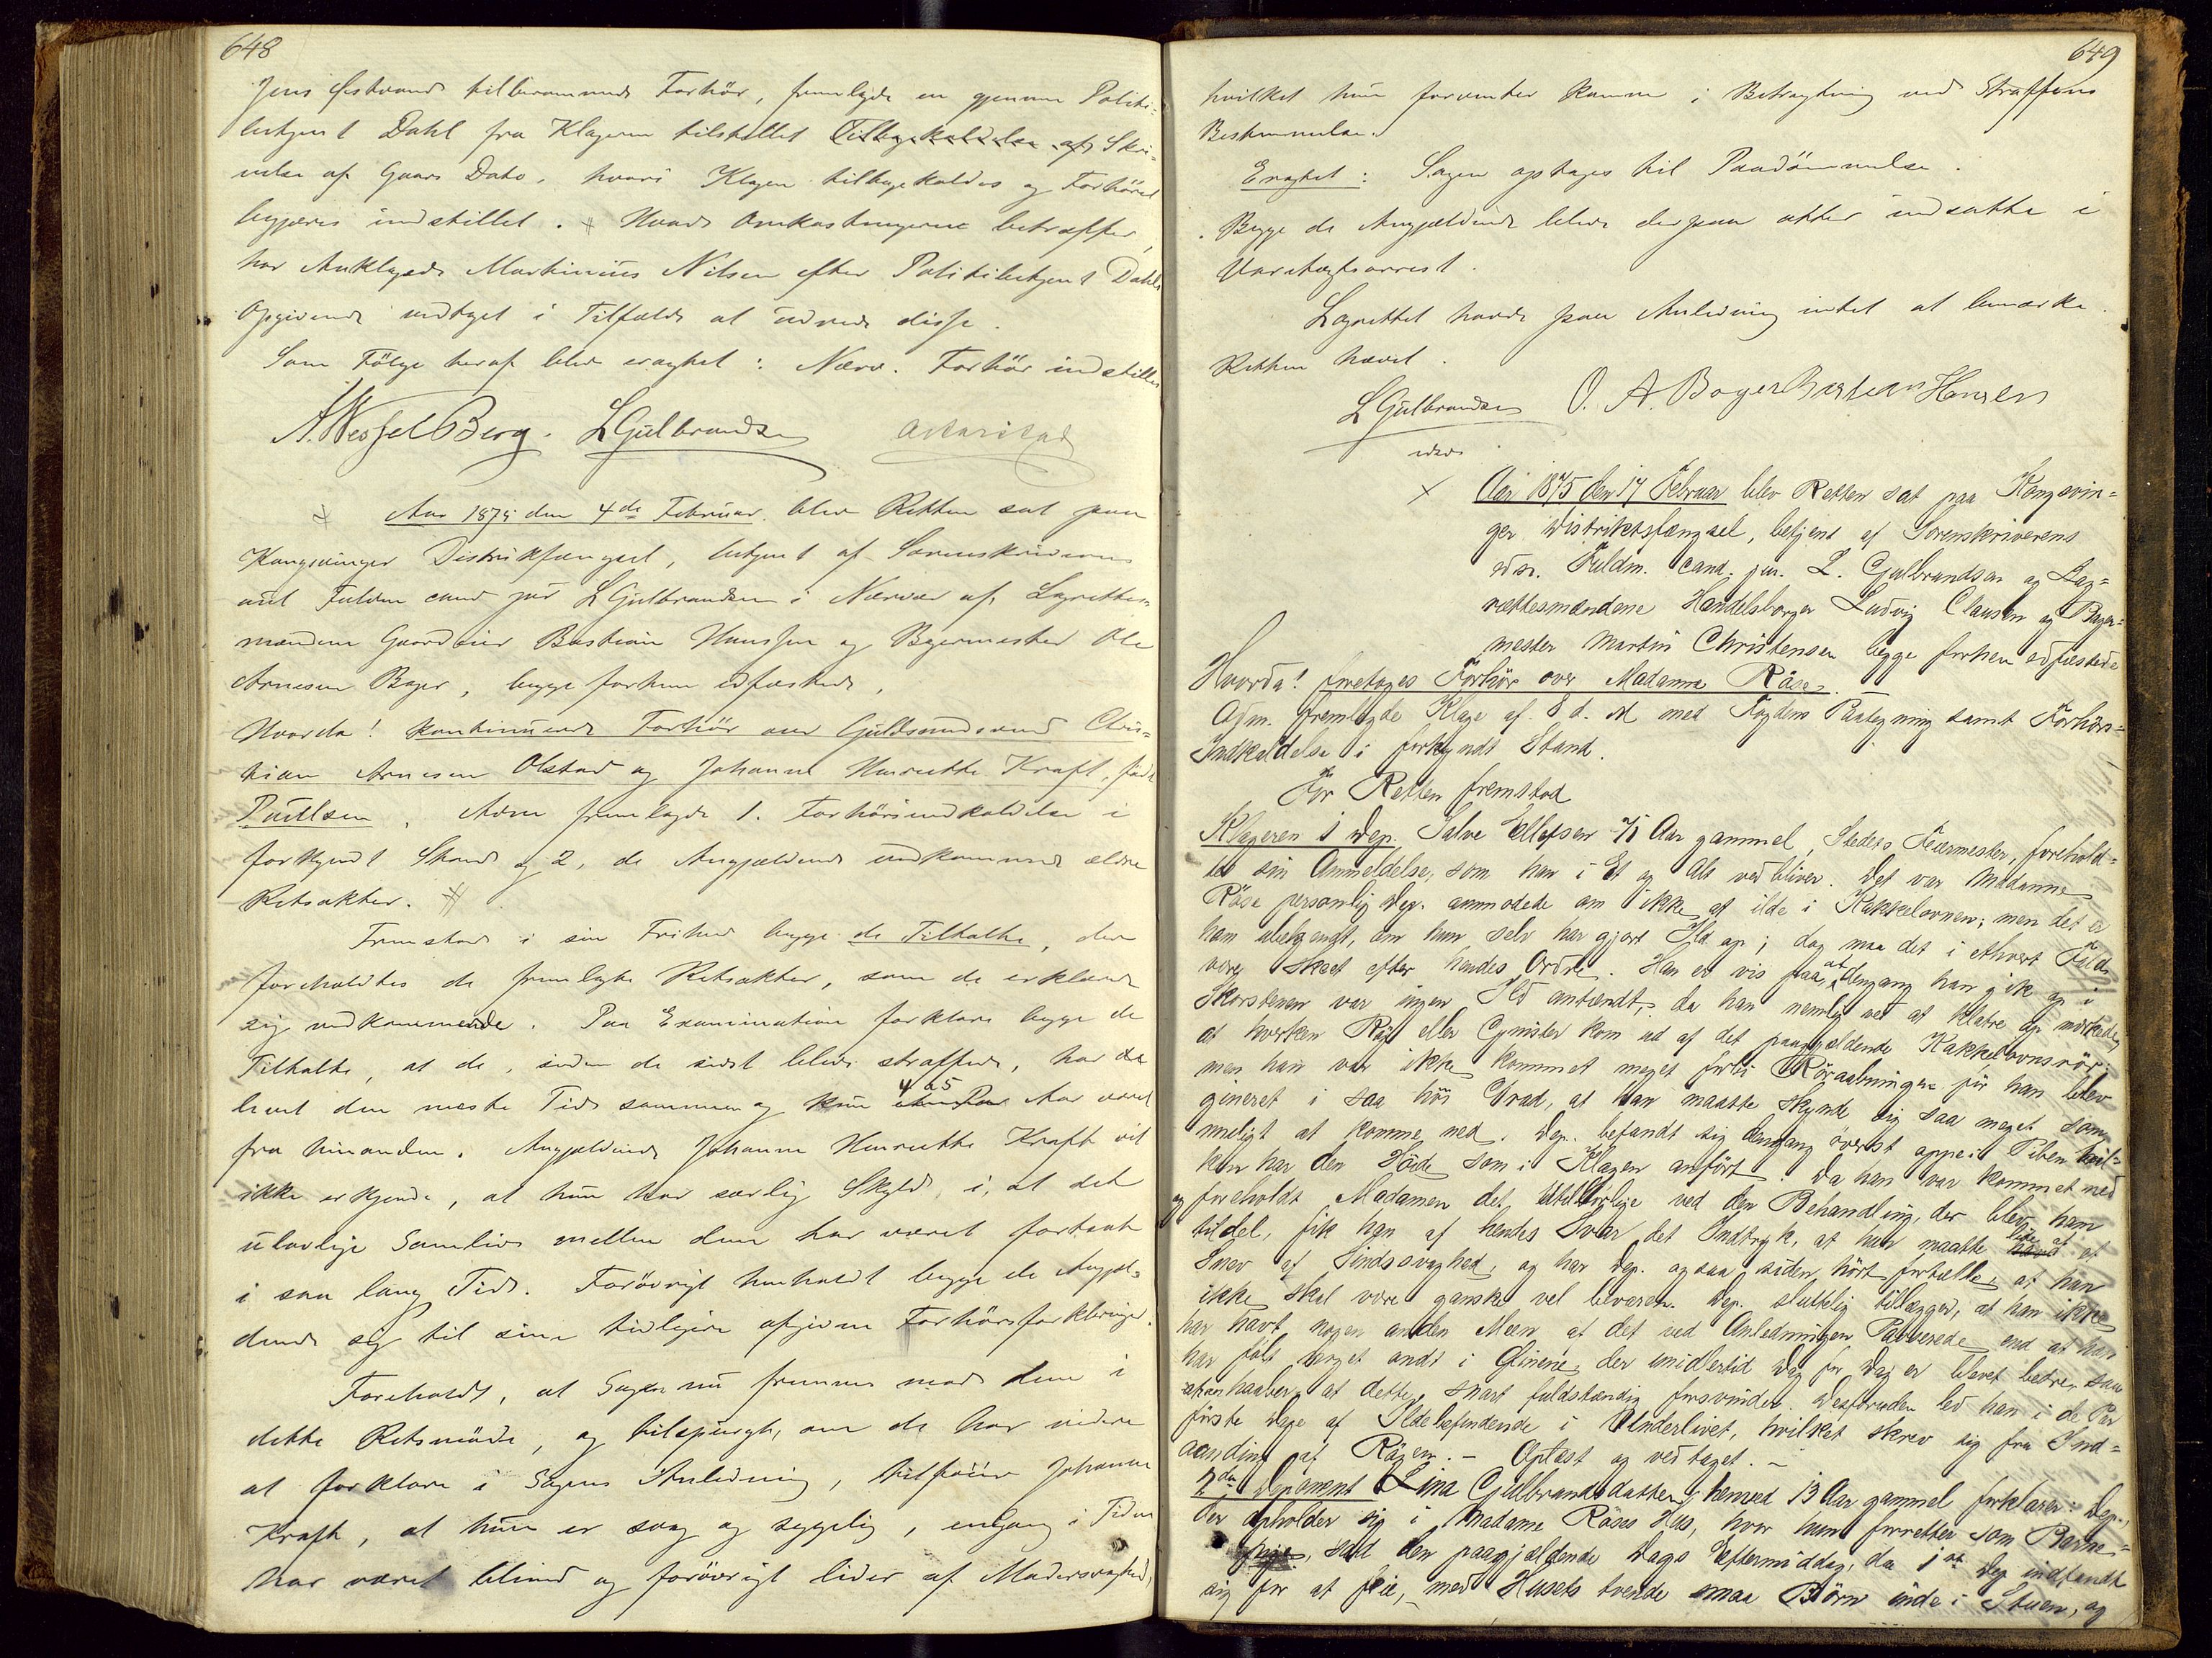 648
Jens Østvand tilberammede Forhör, fremlagde en gjennem Politi-
betjent Dahl fra Klageren tilstillet Tilbagekaldelse af Skri-
velse af Gaars Dato, hvori Klagen tilbagekaldes og Forhöret
begjæres indstillet. # Hvad Omkostningerne betræffer,
har Anklagede Martinius Nilsen efter Politibetjent Dahls
Opgivende vedtaget i Tilfælde at udrede disse.
Som Fölge heraf blev eragtet: Nærv. Forhör indstilles
A. Wessel Berg. L Gulbrandsen
# Aar 1875 den 4de Februar blev Retten sat paa
Kongsvinger Distriktsfængsel, betjent af Sorenskriverens
ved Fuldm cand jur L Gulbrandsen i Nærvær af Lagrettes-
mændene Gaardeier Bastian Hanssen og Bagermester Ole
Arnesen Bager, begge forhen edfæstede,
Hvorda! kontinuerede Forhör over Guldsmedsvend Chris-
tian Arnesen Olstad og Johanne Henriette Kraft, född
Paulsen. Adm fremlagde 1. Forhörsindkaldelse i
forkyndt Stand og 2, de Angjældende vedkommende ældre
Retsakter. #
Fremstod i sin Frihed begge de Tiltalte, der
foreholdtes de fremlagte Retsakter, som de erklærede
sig vedkommende. Paa Examination forklare begge de
Tiltalte, at de, siden de sidst bleve straffede, har le-
vet den meste Tid sammen og kun 4 a 5 Aar været
fra hinanden. Angjældende Johanne Henriette Kraft vil
ikke erkjende, at hun har særlig Skyld i, at det
ulovlige Samliv mellem dem har været fortsat
i saa lang Tid. Forövrigt henholdt begge de Angjæl-
dende sig til sine tidligere afgivne Forhörsforklaringer.
Foreholdt, at Sagen nu fremmes mod dem i
dette Retsmöde, og tilspurgt, om de har videre
at forklare i Sagens Anledning, tilföier Johanne
Kraft, at hun er svag og sygelig, engang i Tiden
har været blind og forövrigt lider af Modersvaghed,
649
hvilket hun forventer kommer i Betragtning ved Straffens
Bestemmelse.
Eragtet: Sagen optages til Paadömmelse.
Begge de Angjældende bleve derpaa atter indsatte i
Varetægtsarrest.
Lagrettet havde paa Anledning intet at bemærke.
Retten hævet.
L Gulbrandsen O. A. Bager Bastian Hansen
edsv.
× Aar 1875 den 17 Februar blev Retten sat paa Kongsvin-
ger Distriktsfængsel, betjent af Sorenskriverens
edsv. Fuldm. cand. jur. L. Gulbrandsen og Lag-
rettesmændene Handelsborger Ludvig Clausen og Bager-
mester Martin Christensen begge forhen edfæstede
Hvorda! foretoges Forhör over Madame Röse.
Adm. fremlagde Klage af 8 d. M med Fogdens Paategning samt Forhörs-
Indkaldelse i forkyndt Stand.
For Retten fremstod
Klageren 1 Dep. Salve Ellefsen 71 Aar gammel, Stedets Feiermester, forehold-
tes sin Anmeldelse, som han i Et og Alt vedbliver. Det var Madame
Röse personlig Dep. anmodede om ikke at ilde i Kakkelovnen; men det er
ham ubekjendt, om hun selv har gjort Ild op; dog maa det i ethvert Fald
være skeet efter hendes Ordre. Han er vis paa, at dengang han gik op i
Skorstenen var ingen Ild antændt, da han nemlig ved at klatre op mærkede,
at hverken Røg eller Gnister kom ud af det paagjældende Kakkelovnsrör.
men han var ikke kommet meget forbi Röraabningen för han blev
generet i saa höi Grad, at han maatte skynde sig saa meget som
muligt at komme ned. Dep. befandt sig dengang överst oppe i Piben hvil-
ken har den Höide som i Klagen anfört. Da han var kommet ned
og foreholdt Madamen det Utilbörlige ved den Behandling, der blev ham
tildel, fik han af hendes Svar det Indtryk, at hun maatte lide af et
Snev af Sindssvaghed, og har Dep. ogsaa siden hört fortælle, at hun
ikke skal være ganske vel bevaren. Dep. sluttelig tillægger, at han ikke
har havt nogen anden Meen af det ved Anledningen Passerede end at han
har fölt meget ondt i Öinene, der imidlertid Dag for Dag er blevet bedre, saa
at han haaber, at dette snart fuldstændig forsvinder. Desforuden led han i de Par
förste Dage af Ildebefindende i Underlivet, hvilket skrev sig fra Ind-
aanding af Rögen. – Oplæst og vedtaget. –
2den Deponent Lina Gulbrandsdatter, henved 13 Aar gammel forklarer: Dep.,
der opholder sig i Madame Röses Hus, hvor hun forretter som Barne-
pige, sad den paagjældende Dags Eftermiddag, da 1ste Dep indfandt
sig for at feie, med Husets tvende smaa Börn inde i Stuen, og